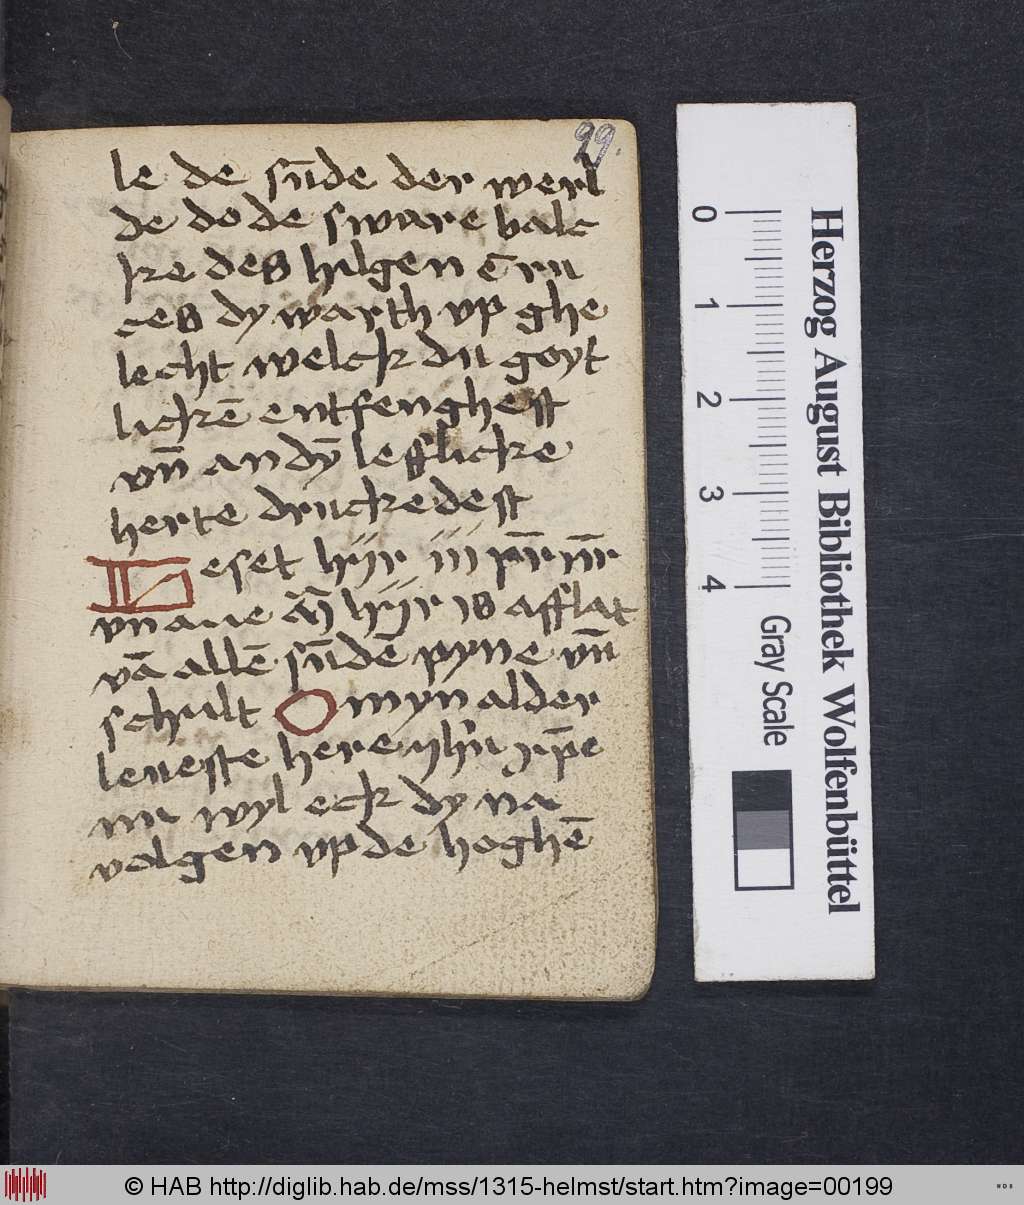 99.
le de sūde der werl
de do de sware balc
ke des hilgen crū
ces dy warth vp ghe
lecht welck du goyt
lickē entfenghest
vn̄ an dȳ lefflicke
herte druckedest
Leset hyr iij pr̄ nr̄
vn̄ aue hyr is afflat
vā allē sūdē pyne vn̄
schult O myn alder
leueste here ihū xp̄e
nu wyl eck dy na
volgen vp de hoghē
0 1 2 3 4
Herzog August Bibliothek Wolfenbüttel
Gray Scale
© HAB http://diglib.hab.de/mss/1315-helmst/start.htm?image=00199
WDB